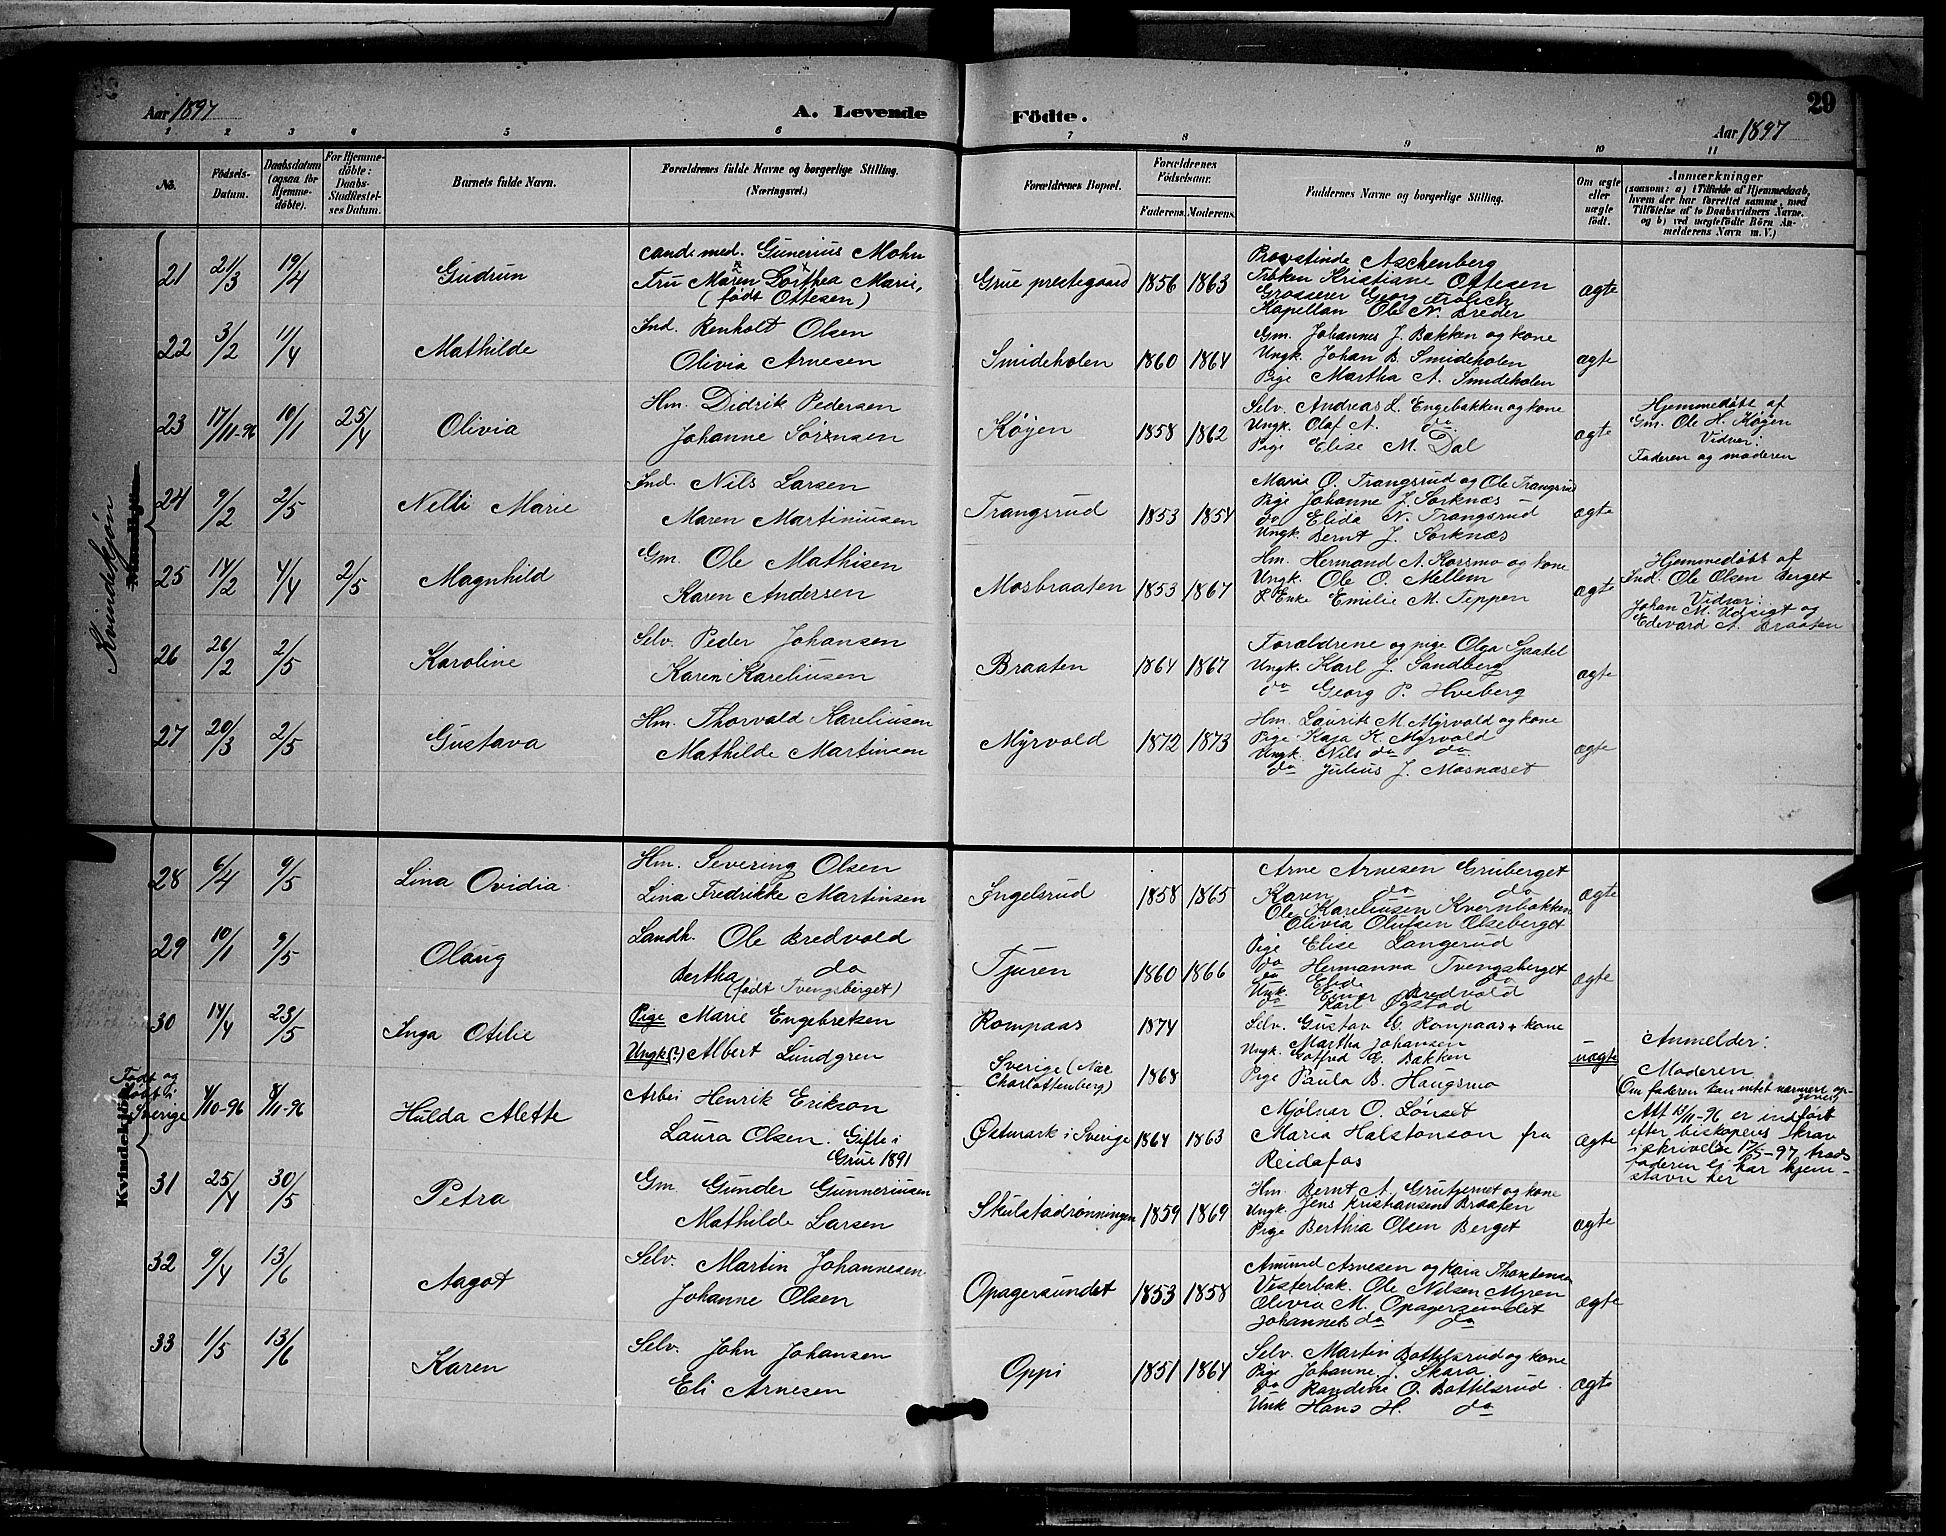 Aar 1897
A. Levende
Födte.
29
Aar 1897
1 2 3 4 5 6 7 8 9 10 11
No.
Fødsels-Datum.
Daabsdatum (ogsaa for Hjemme-døbte).
For Hjemme-døbte: Daabs-Stadfæstel-ses Datum.
Barnets fulde Navn.
Forældrenes fulde Navne og borgerlige Stilling. (Næringsvei.)
Forældrenes Bopæl.
Forældrenes Fødselsaar.
Faderens. Moderens.
Faddernes Navne og borgerlige Stilling.
Om ægte eller uægte født.
Anmærkninger
(saasom: a) i Tilfælde af Hjemmedaab,
hvem der har forrettet samme, med
Tilføielse af to Daabsvidners Navne,
og b) ved uægtefødte Børn An-
melderens Navn m. V.)
Kvindekjøn
21 21/3 19/4 Gudrun
cand. med. Gunerius Mohn
Fru Maren Dorthea Marie,
(født Ottesen)
Grue prestegaard 1856 1863
Provstinde Aschenberg
Frøken Kristiane Ottesen
Grosserer Georg Frölich
Kapellan Ole N. Breder
ægte
22 3/2 11/4 Mathilde
Ind. Renholt Olsen
Olivia Arnesen
Smideholen 1860 1864
Gm. Johannes J. Bakken og kone
Ungk. Johan B. Smideholen
Pige Martha A. Smideholen
ægte
23 17/11-96 10/1 25/4 Olivia
Hm. Didrik Pedersen
Johanne Sørensen
Køyen 1858 1862
Selv. Andreas L. Engebakken og kone
Ungk. Olaf A. do
Pige Elise M. Dal
ægte
Hjemmedøbt af
Gm. Ole H. Køyen
Vidner:
Faderen og moderen
24 9/2 2/5 Nelli Marie
Ind. Nils Larsen
Maren Martiniusen
Trangsrud 1853 1854
Marie O. Trangsrud og Ole Trangsrud
Pige Johanne J. Sorknæs
do Elida N. Trangsrud
Ungk. Bernt J. Sorknæs
ægte
25 14/2 4/4 2/5 Magnhild
Gm. Ole Mathisen
Karen Andersen
Mosbraaten 1853 1867
Hm. Hermand A. Korsmo og kone
Ungk. Ole O. Mellem
Enke Emilie M. Teppen
ægte
Hjemmedøbt af
Ind. Ole Olsen Berget
Vidner:
Johan M. Udsigt og
Edevard A. Braaten
26 26/2 2/5 Karoline
Selv. Peder Johansen
Karen Kareliusen
Braaten 1864 1867
Forældrene og pige Olga Sjaatel
Ungk. Karl J. Sandberg
do Georg P. Hveberg
ægte
27 20/3 2/5 Gustava
Hm. Thorvald Kareliusen
Mathilde Martinsen
Myrvold 1872 1873
Hm. Laurits M. Myrvold og kone
Pige Kaja K. Myrvold
Ungk. Nils do do
do Julius J. Mosnæset
ægte
28 6/4 9/5 Lina Ovidia
Hm. Severing Olsen
Lina Fredrikke Martinsen
Ingelsrud 1858 1865
Arne Arnesen Gruberget
Karen do do
Ole Kareliusen Kvernbakken
Olivia Olufsen Olseberget
ægte
29 10/1 9/5 Olaug
Landh. Ole Bredvold
Bertha do
(født Tvengsberget)
Tjuren 1860 1866
Pige Elise Langerud
do Hermanna Tvengsberget
do Elide do
Ungk. Einar Bredvold
do Karl Øgstad
ægte
Kvindekjön
30 14/4 23/5 Inga Otilie
Pige Marie Engebretsen
Ungk(?) Albert Lundgren
Rompaas 1874
Sverige (Nær
Charlottenberg) 1868
Selv. Gustav G. Rompaas + kone
Martha Johansen
Ungk. Gotfred G. Bakken
Pige Paula B. Haugsmo
uægte
Anmelder:
Moderen
Om faderen kan intet nærmere op-
gives
Født og
døbt i
Sverige
4/10-96 8/11-96 Hulda Alette
Arbei Henrik Erikson
Laura Olsen. Gifte i
Grue 1891
Østmark i Sverige 1864 1863
Mølnar O. Lønset
Maria Halstonson fra
Reidafos
ægte
Att 13/11-96 er indført
efter biskopens krav
i skrivelse 17/5-97, trods
faderen ei har hjem-
stavn her
31 25/4 30/5 Petra
Gm. Gunder Gunneriusen
Mathilde Larsen
Skulstadrønningen 1859 1869
Hm. Bernt A. Grutjernet og kone
Ungk. Jens Kristiansen Braaten
Pige Berthia Olsen Berget
ægte
32 9/4 13/6 Aagot
Selv. Martin Johannesen
Johanne Olsen
Opagersundet 1853 1858
Amund Arnesen og Kaia Thorstensen
Vesterbak. Ole Nilsen Myren
Olivia M. Opagersundet
Johannes do do
ægte
33 1/5 13/6 Karen
Selv. John Johansen
Eli Arnesen
Oppi 1851 1864
Selv. Martin Bottilsrud og kone
Pige Johanne J. Skara
do Randine O. Bottilsrud
Unk Hans H. do
ægte